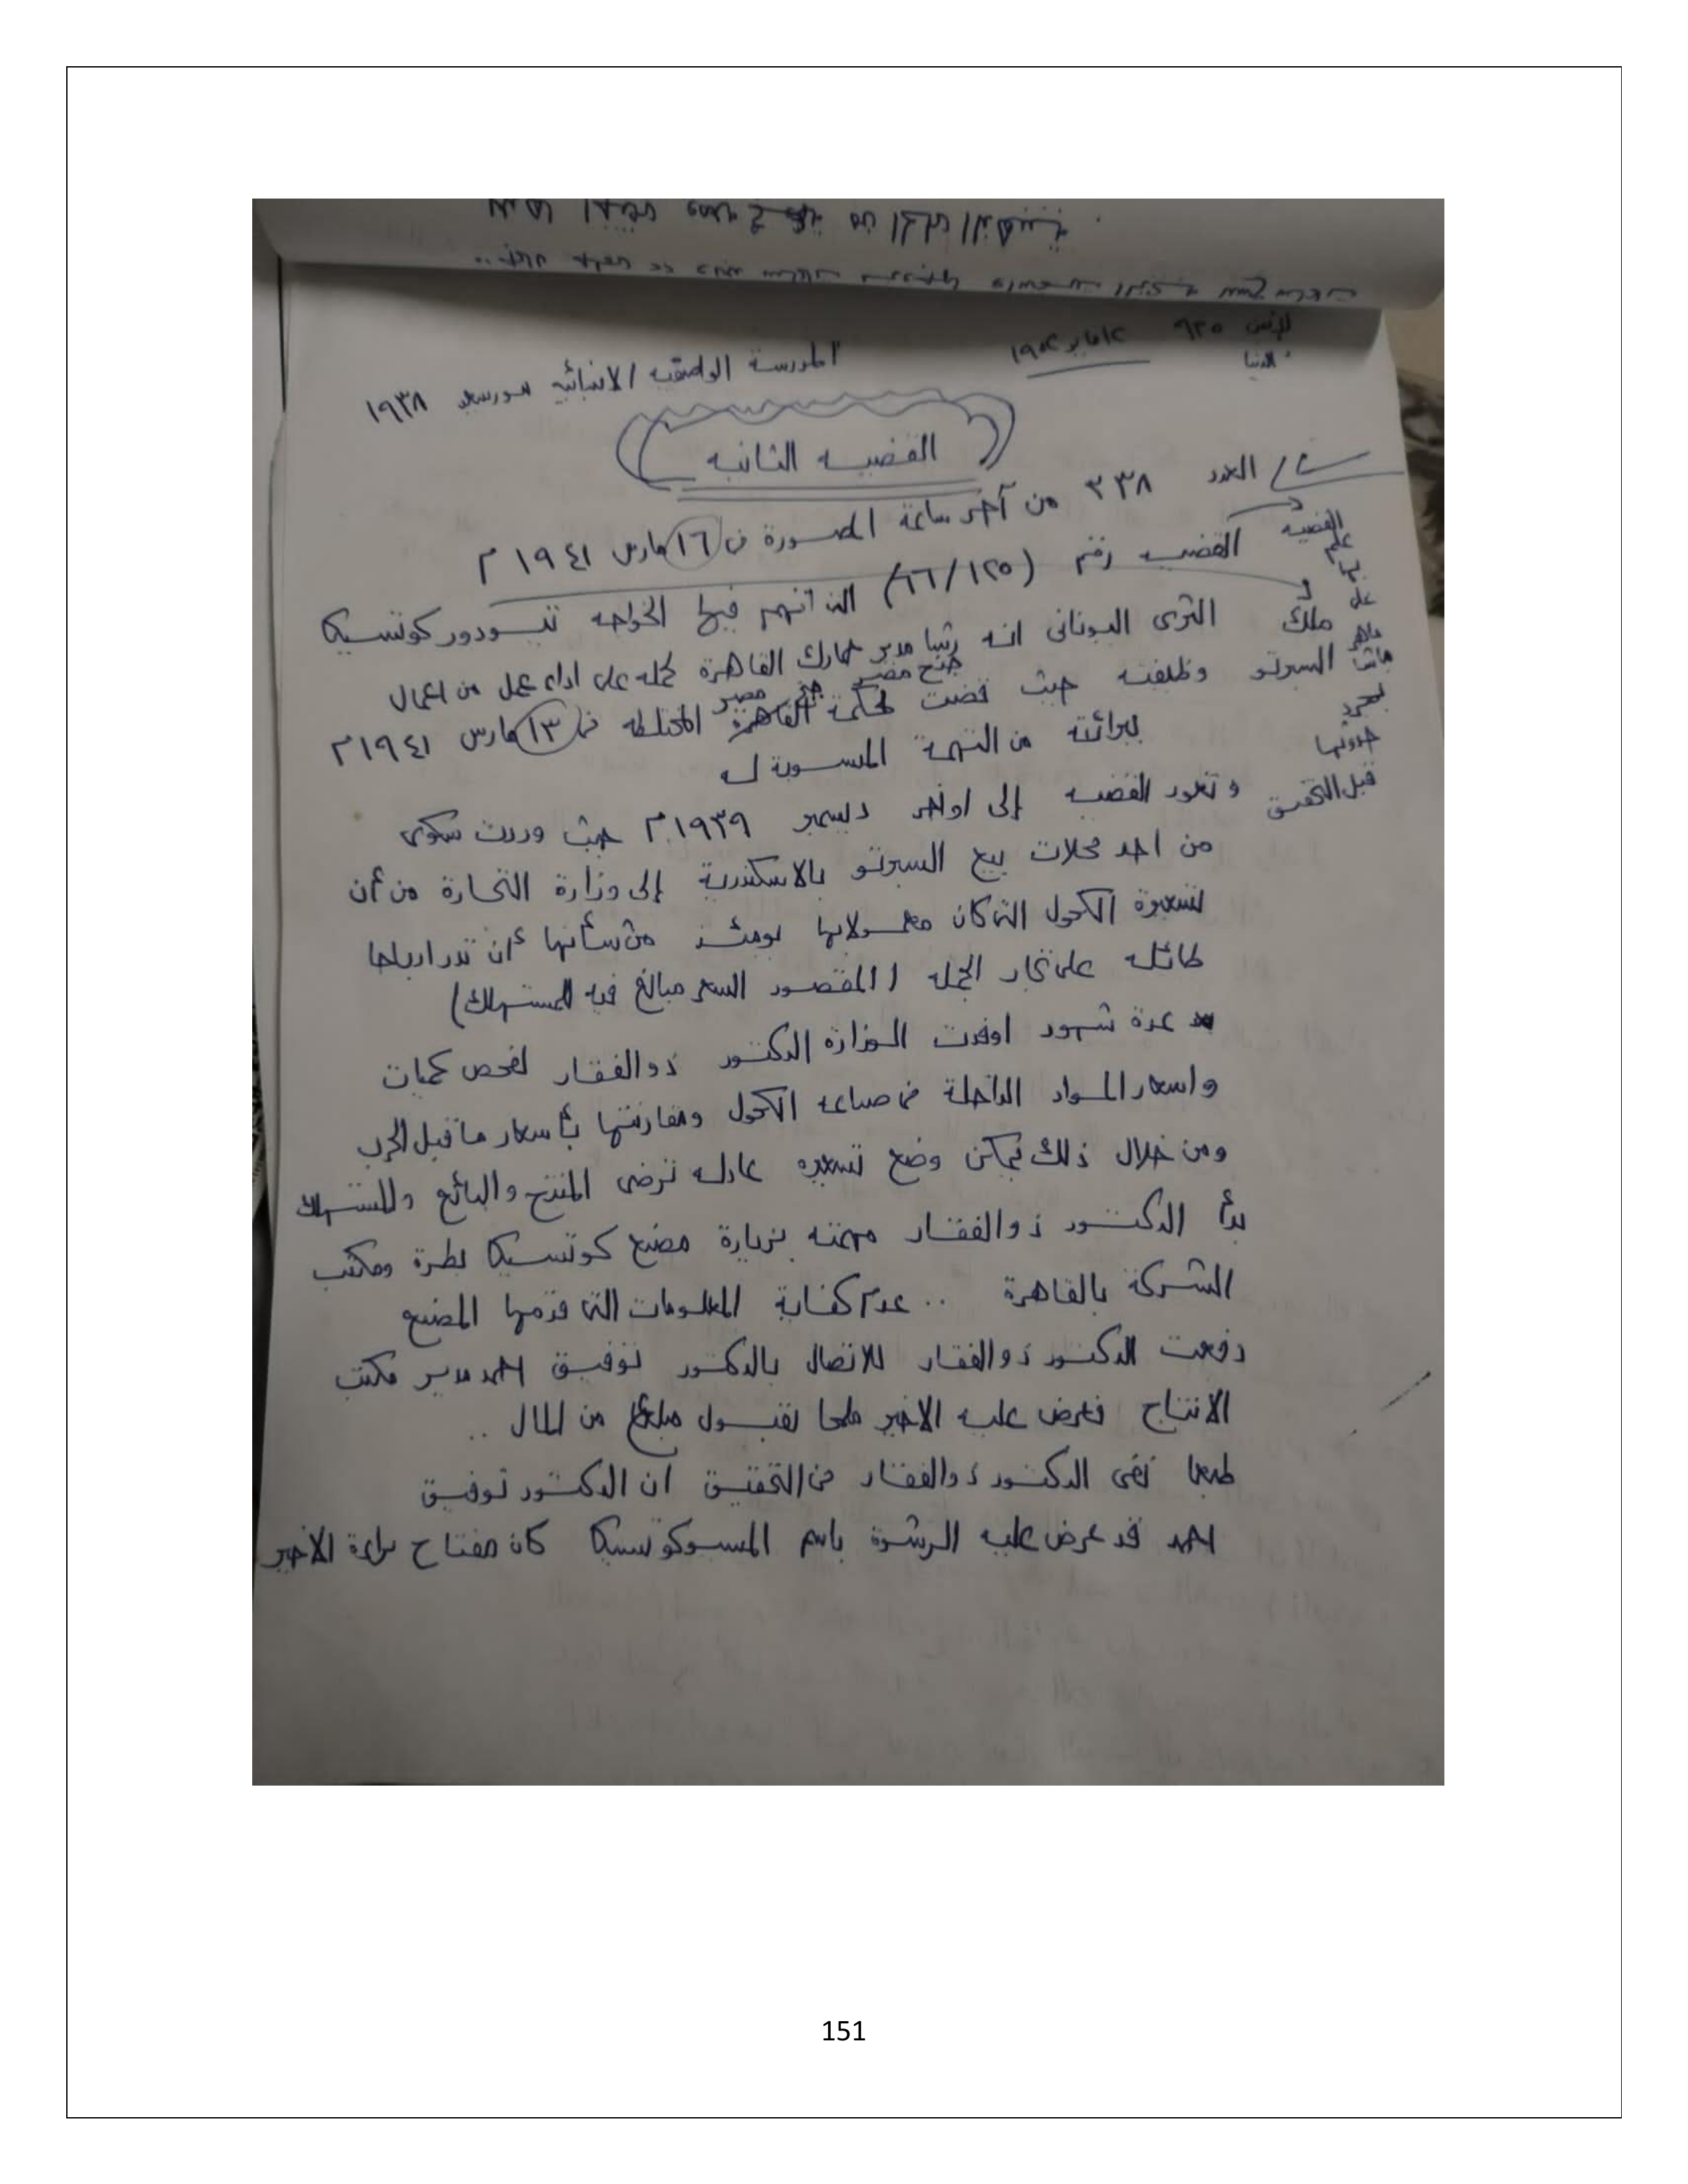 المدرسة الواصفية الابتدائية ببورسعيد ١٩٣٨
القضيه الثانيه
العدد ٣٣٨ من آخر ساعة المصورة في ١٦ مارس ١٩٤١ م
القضيه رقم (٦٦/١٢٥) التى اتهم فيها الخواجه تيودور كوتسيكا
ملك
الثرى اليونانى انه رشا مدير جمارك القاهرة لحمله على اداء عمل من اعمال
السبرتو وظيفته حيث قضت محكمة القاهرة جنح مصر المختلطه فى ١٣ مارس ١٩٤١ م
ببرائته من التهمة المنسوبة له
القضيه
على
ماهر
باشا
بمجرد
حدوثها
قبل التحقيق
وتعود القضيه إلى اواخر ديسمبر ١٩٣٩ م حيث وردت شكوى
من احد محلات بيع السبرتو بالاسكندرية إلى وزارة التجارة من أن
تسعيرة الكحول التى كان معمولا بها يومئذ من شأنها أن تدر ارباحا
طائله على تجار الجمله (المقصود السعر مبالغ فيه للمستهلك)
عدة شهور اوفدت الوزارة الدكتور ذو الفقار لفحص كميات
واسعار المواد الداخلة فى صناعه الكحول ومقارنتها بأسعار ما قبل الحرب
ومن خلال ذلك يمكن وضع تسعيره عادله ترضى المنتج والبائع والمستهلك
بدأ الدكتور ذو الفقار مهمته بزيارة مصنع كوتسيكا بطرة ومكتب
الشركة بالقاهرة .. عدم كفاية المعلومات التى قدمها المصنع
دفعت الدكتور ذو الفقار للاتصال بالدكتور توفيق احمد مدير مكتب
الانتاج فعرض عليه الاخير ملحا بقبول مبلغ من المال ..
طبعا نفى الدكتور ذو الفقار فى التحقيق ان الدكتور توفيق
احمد قد عرض عليه الرشوة باسم المسيو كوتسيكا كان مفتاح براءة الاخير
151